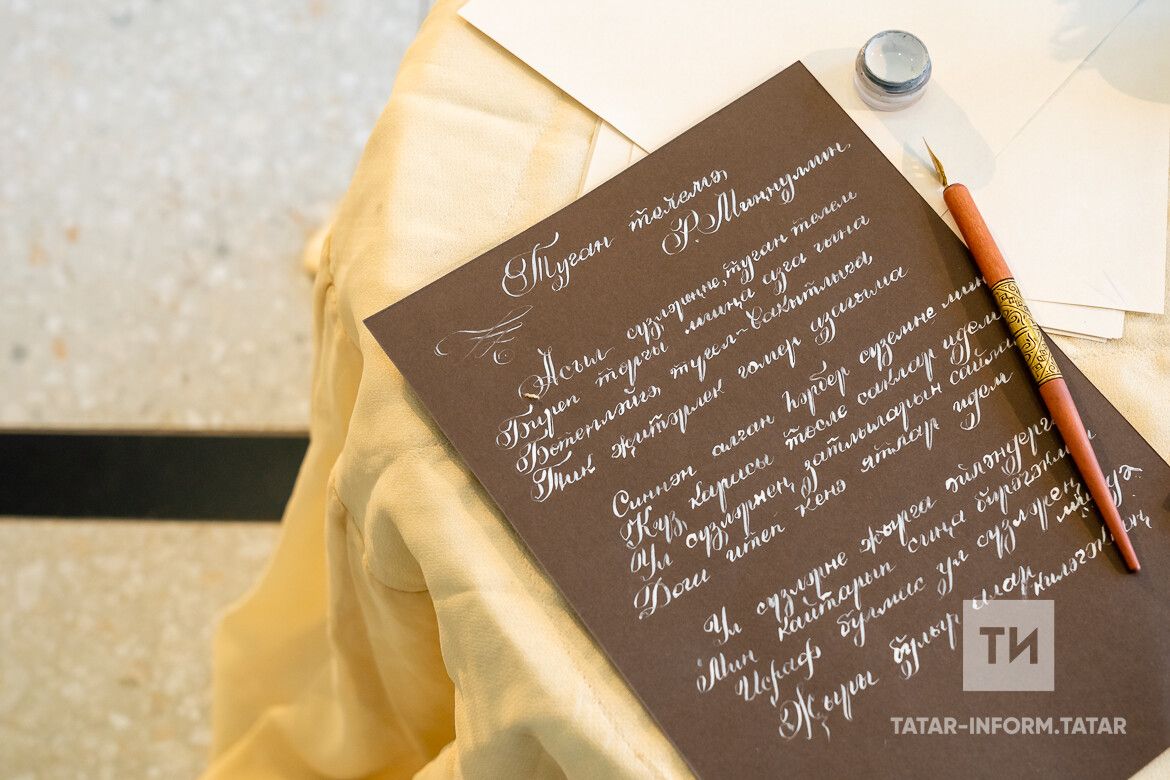 Туган телемә
Р. Миңнуллин
Асыл сүзләреңне, туган телем
Биреп торгы миңа азга гына
Бөтенләйгә түгел – вакытлыга,
Тик җитәрлек гомер узагыма
Синнән алган һәрбер сүземне мин
Күз карасы төсле саклар идем
Ул сүзләрнең затлыларын сайлап
Дога итеп кенә ятлар идем
Ул сүзләрне җырга әйләндереп
Мин кайтарып сиңа бирәгәкмен
Исраф булмас ул сүзләрең
Җыры булыр алар киләгәкнең
ТИ
TATAR-INFORM.TATAR